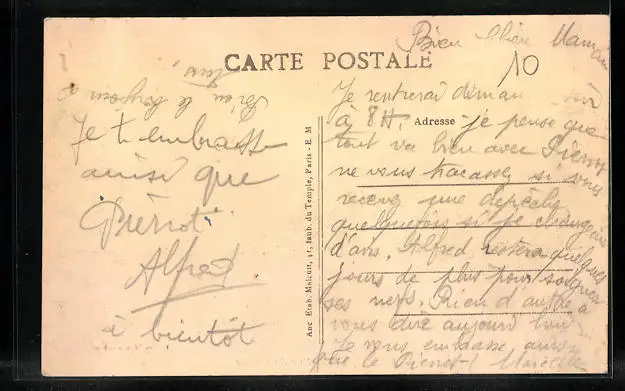 CARTE POSTALE
Bien chère Maman
10
Je rentrerai demain soir
à 8H. Adresse je pense que
tout va bien avec Pierrot
ne vous tracassez si vous
recevez une dépêche
quelquefois si je changeais
d'avis. Alfred restera quelques
jours de plus pour soigner
ses nerfs. Rien d'autre à
vous dire aujourd'hui
Je vous embrasse ainsi
que le Pierrot Marcelle
Anc Etab. Malcuit, 41, faub. du Temple, Paris - E. M
bonjour à
tous
Je t'embrasse
ainsi que
Pierrot
Alfred
à bientôt